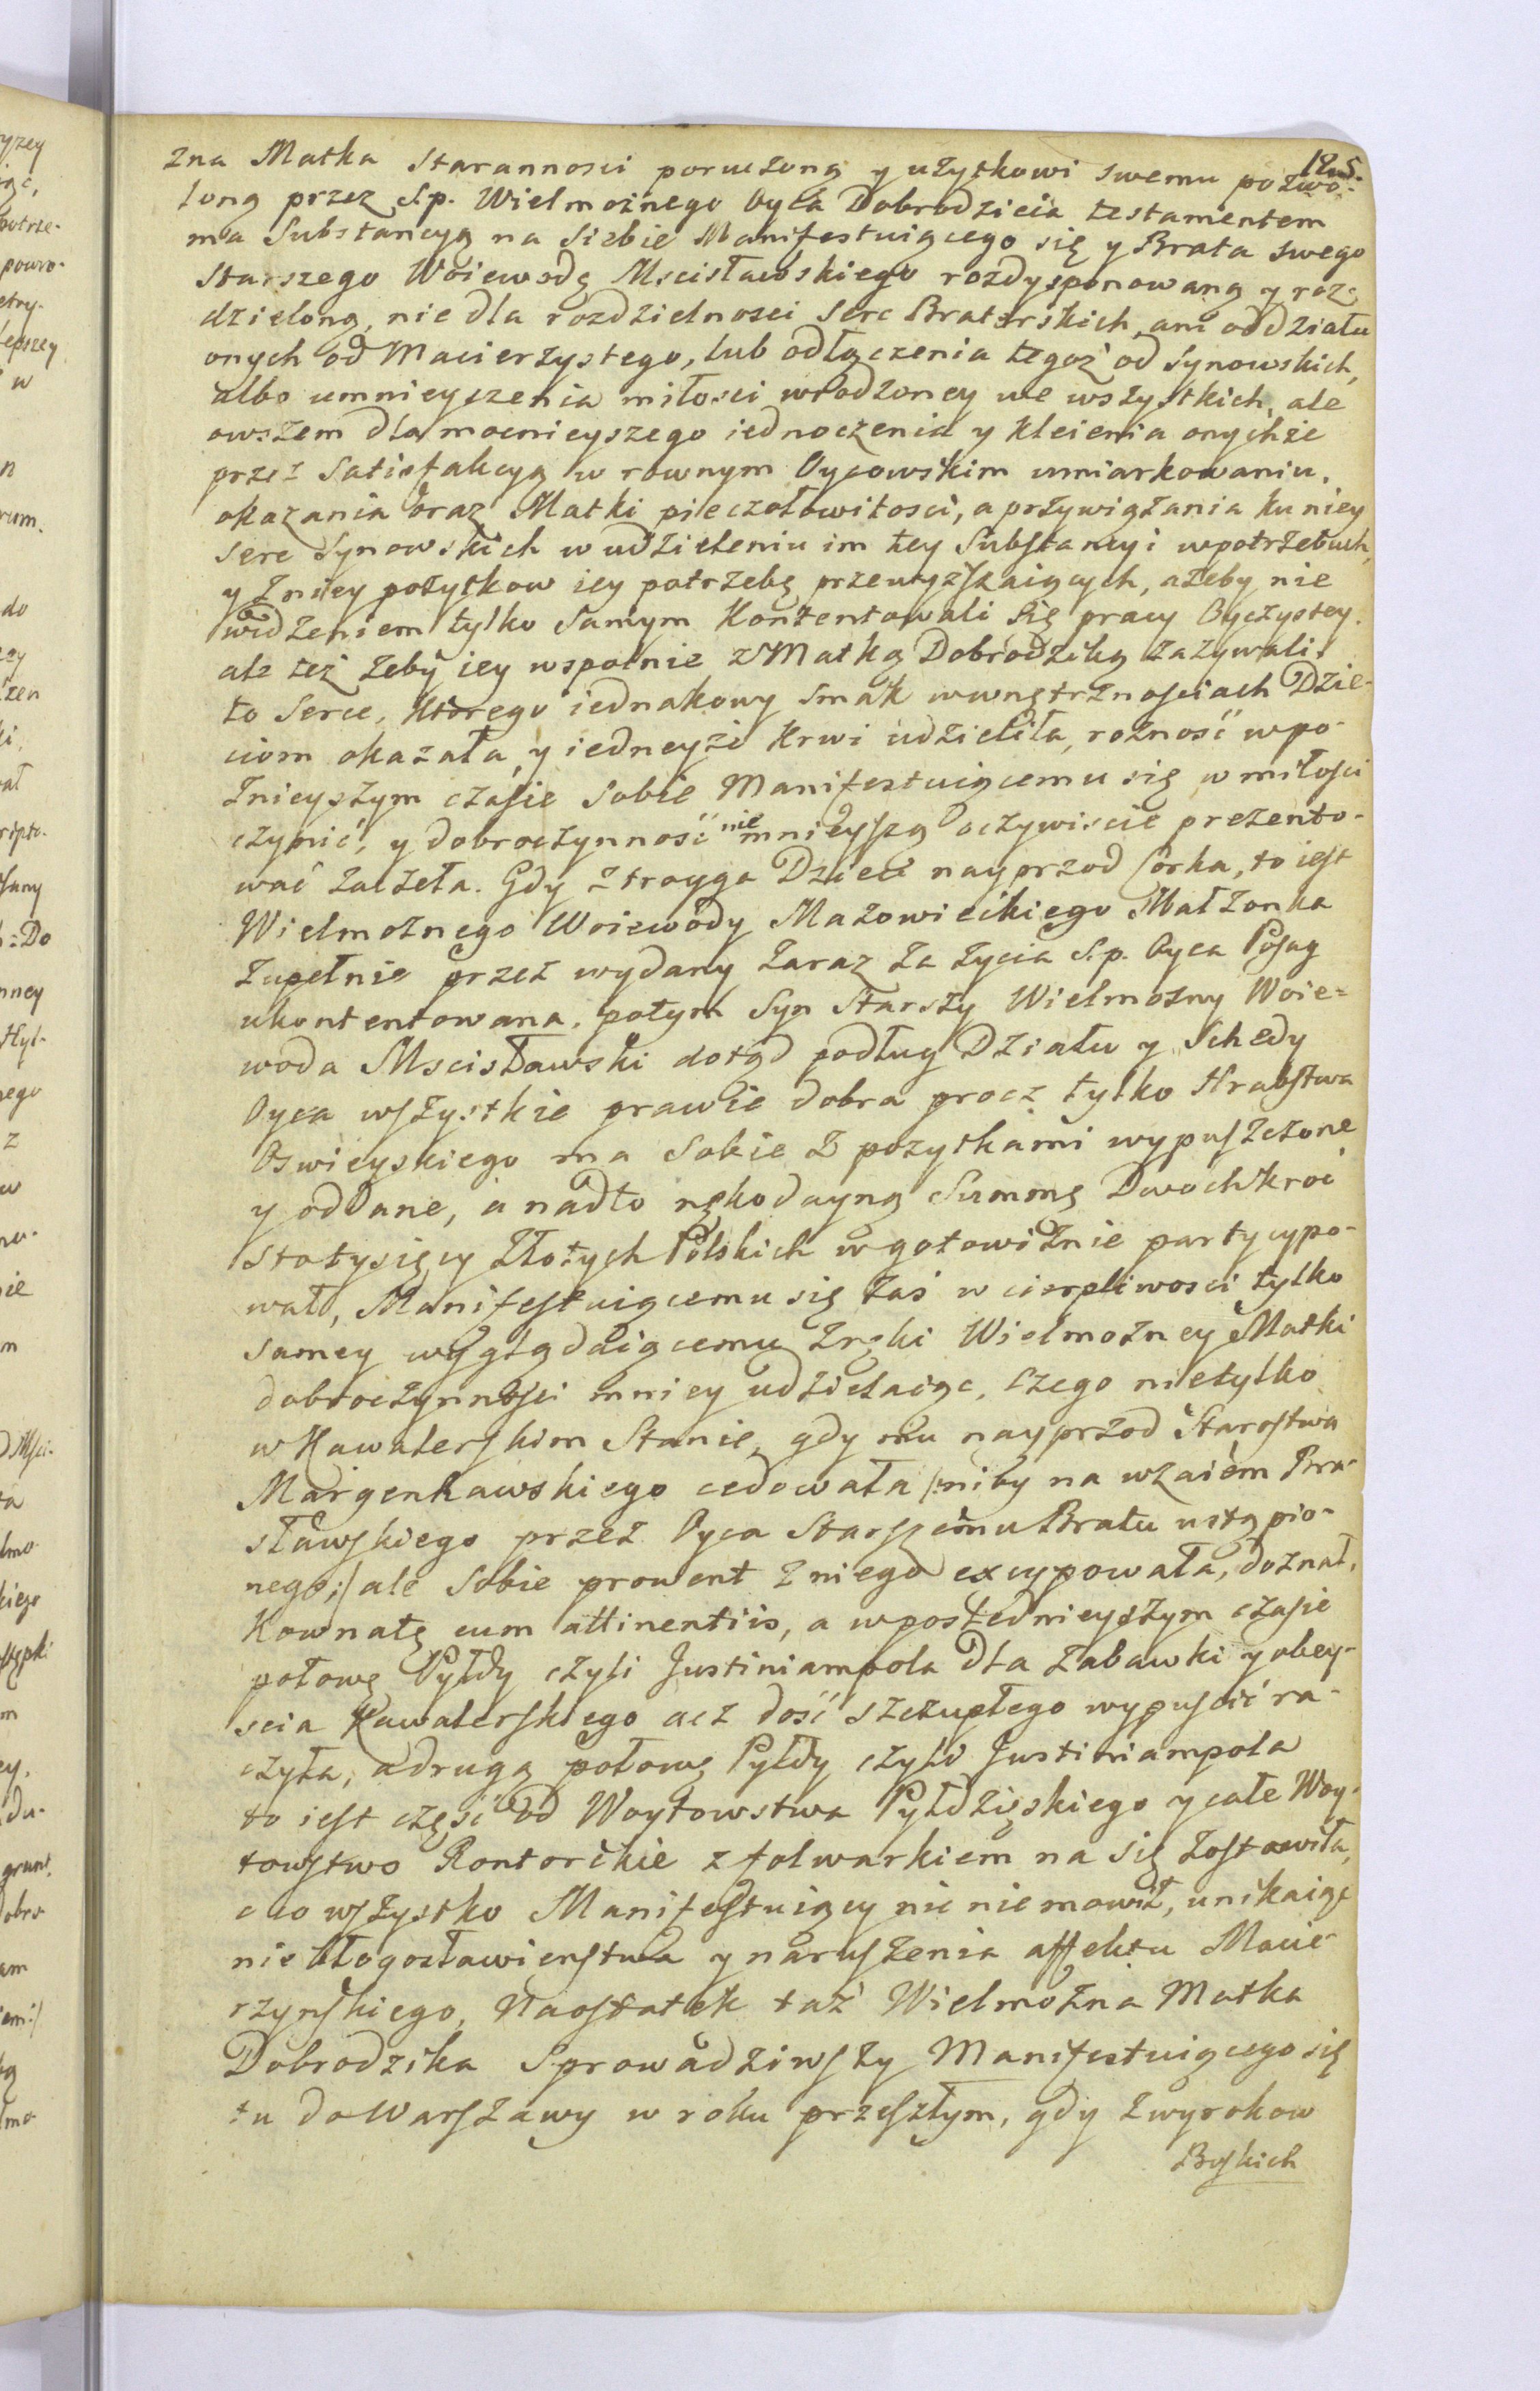 125.
zna Matka Starannosci poruczoną y użytkowi swemu pozwo-
loną przez S.p. Wielmożnego Oyca Dobrodzieia testamentem
ma Substancyą na Siebie Manifestuiącego się y Brata swego
Starszego Woiewodę Mscisławskiego rozdysponowaną y roz-
dzieloną, nie dla rozdzielnosci Serc Braterskich, ani oddziału
onych od Macierzystego, lub odłączenia tegoż od Synowskich,
albo umnieyszenia miłosci wrodzoney we wszystkich, ale
owszem dla mocnieyszego iednoczenia y kleienia onychże
przez Satisfakcyą w rownym Oycowskim umiarkowaniu,
okazania oraz Matki pieczołowitosci, a przywiązania ku niey
Serc Synowskich w udzieleniu im tey Substancyi w potrzebach,
y z niey pożytkow iey potrzebę przewyzszaiących, ażeby nie
widzeniem tylko Samym Kontentowali się pracy Oyczystey.
ale też żeby iey wspolnie z Matką Dobrodziką zażywali.
to Serce, którego iednakowy Smak w wnętrznosciach Dzie-
ciom okazała, y iedneyże krwi udzieliła, rożność w po-
źnieyszym czasie Sobie Manifestuiącemu się w miłosci
czynić, y dobroczynność nie mnieyszą oczywiscie prezento-
wać zaczeła. Gdy z troyga Dzieci nayprzod Corka, to iest
Wielmożnego Woiewody Mazowieckiego Małżonka
zupełnie przez wydany zaraz za życia S.p. Oyca Posag
ukontentowana, potym Syn Starszy Wielmożny Woie-
woda Mscisławski dotąd podług Działu y Schedy
Oyca wszystkie prawie dobra procz tylko Hrabstwa
Oswieyskiego ma Sobie z pożytkami wypuszczone
y oddane, a nadto rękodayną Summę Dwochkroć
stotysięcy Złotych Polskich w gotowiznie partycypo-
wał, Manifestuiącemu się zaś w cierpliwosci tylko
samey wyglądaiącemu z ręki Wielmożney Matki
dobroczynnosci mniey udzielaiąc, czego nietylko
w Kawalerskim Stanie, gdy mu nayprzod Starostwa
Margenhawskiego cedowała /:niby na wzaiem Bra-
sławskiego przez Oyca Starszemu Bratu ustąpio-
nego:/ ale Sobie prowent z niego excypowała, doznał,
Kownatę cum attinentiis, a w poslednieyszym czasie
połowę Pyłdy czyli Justiniampola dla zabawki y obey-
scia Kawalerskiego acz dość szczupłego wypuscić ra-
czyła, a drugą połowę Pyłdy czyli Justiniampola
to iest częsć od Woytowstwa Pyłdzińskiego y całe Woy-
towstwo Rontorskie z folwarkiem na się zostawiła,
o co wszystko Manifestuiący nic nie mowił, unikaiąc
nie błogosławienstwa y naruszenia affektu Macie-
rzynskiego, Naostatek taż Wielmożna Matka
Dobrodzika Sprowadziwszy Manifestuiącego się
tu do Warszawy w roku przeszłym, gdy z wyrokow
Boskich